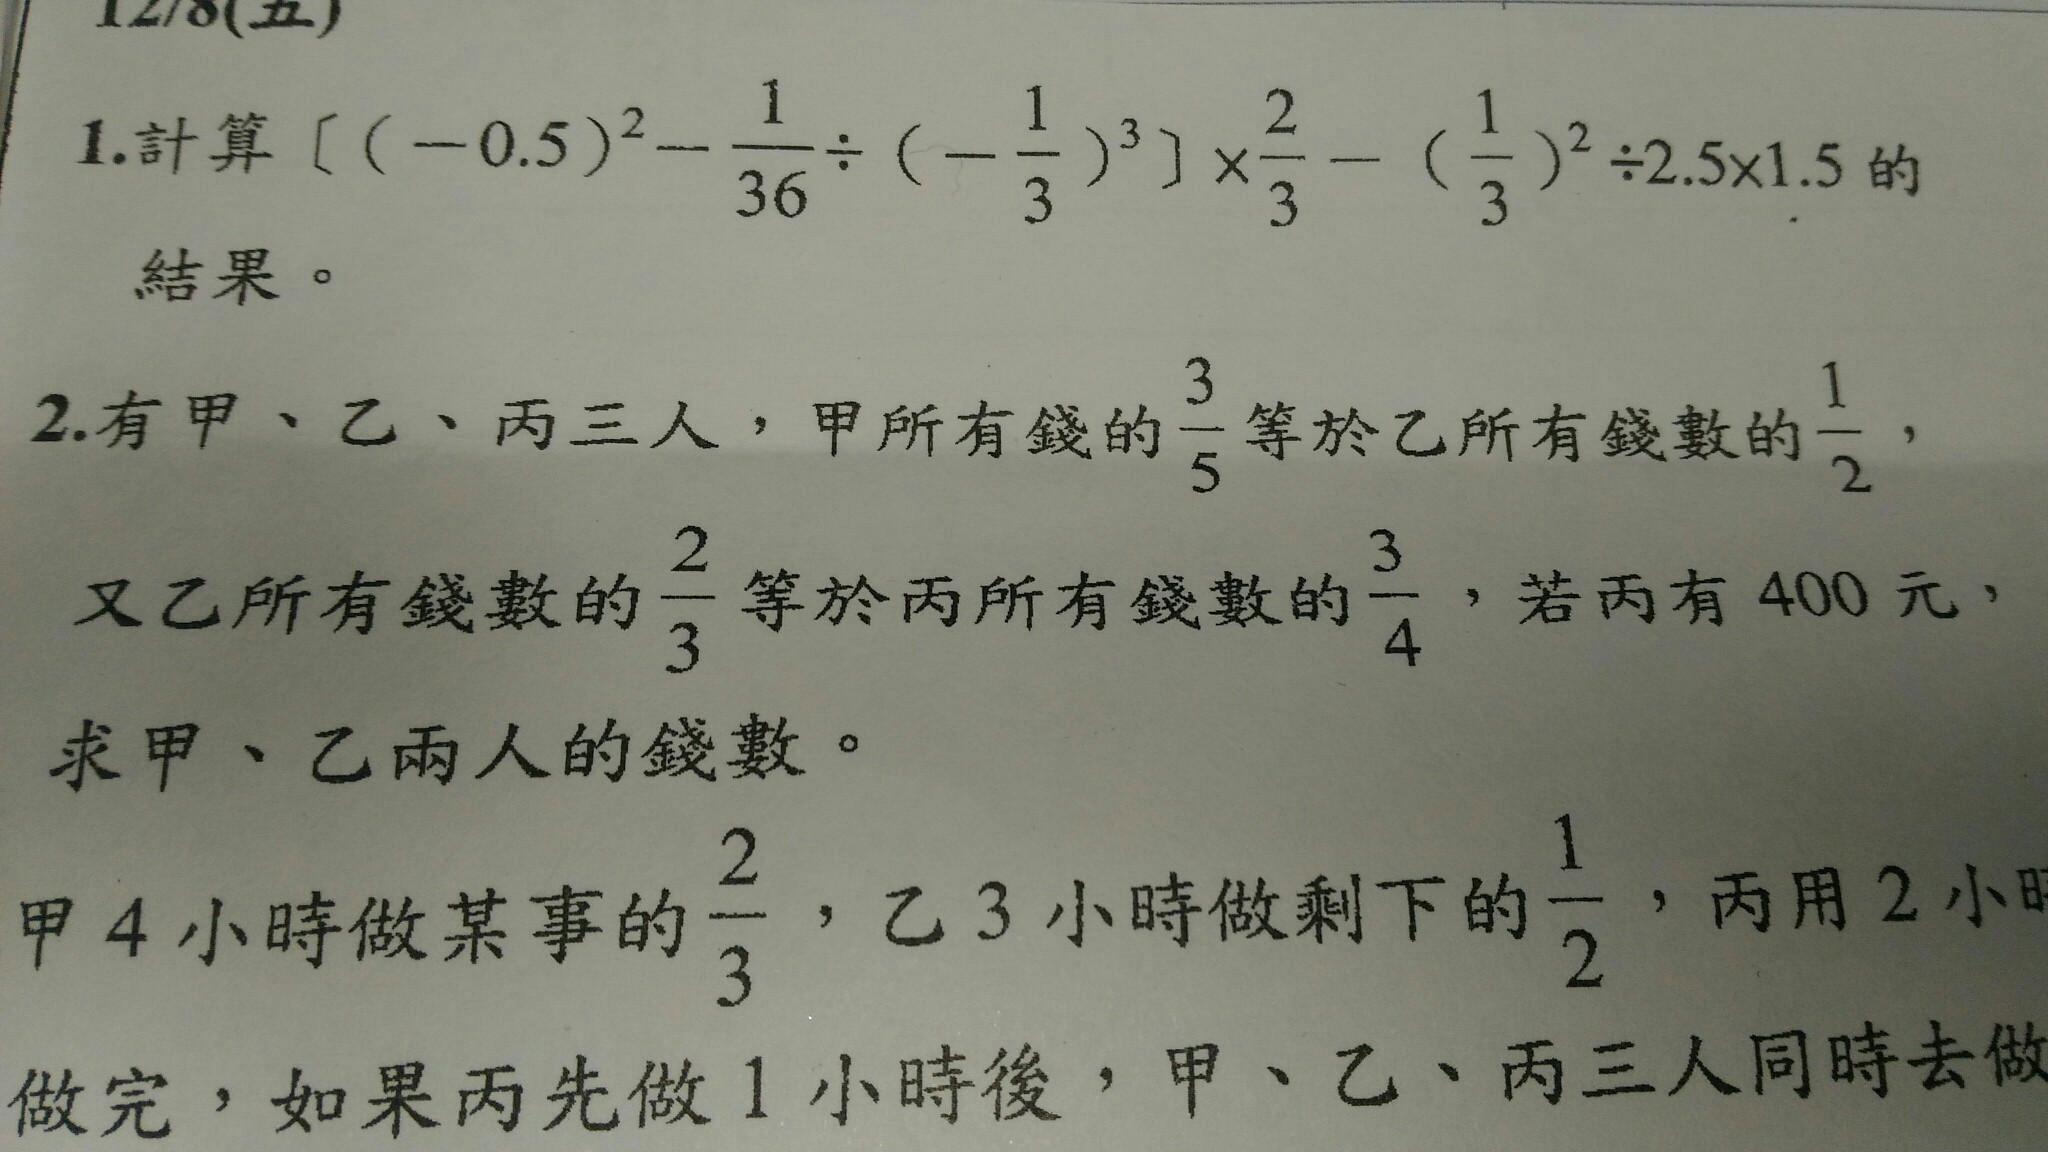 12/8(五)
1.計算〔(-0.5)²-1/36÷(-1/3)³〕×2/3-(1/3)²÷2.5×1.5的
結果。
2.有甲、乙、丙三人，甲所有錢的3/5等於乙所有錢數的1/2，
又乙所有錢數的2/3等於丙所有錢數的3/4，若丙有400元，
求甲、乙兩人的錢數。
甲4小時做某事的2/3，乙3小時做剩下的1/2，丙用2小時
做完，如果丙先做1小時後，甲、乙、丙三人同時去做